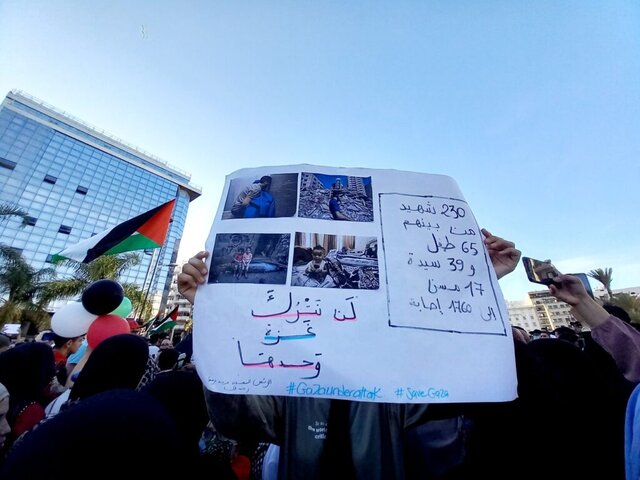 230 شهيد
من بينهم
65 طفل
و 39 سيدة
17 مسن
إلى 1760 إصابة
لَن نَترُكَ
غَزة
وَحدهَا
#Gazaunderattak #SaveGaza